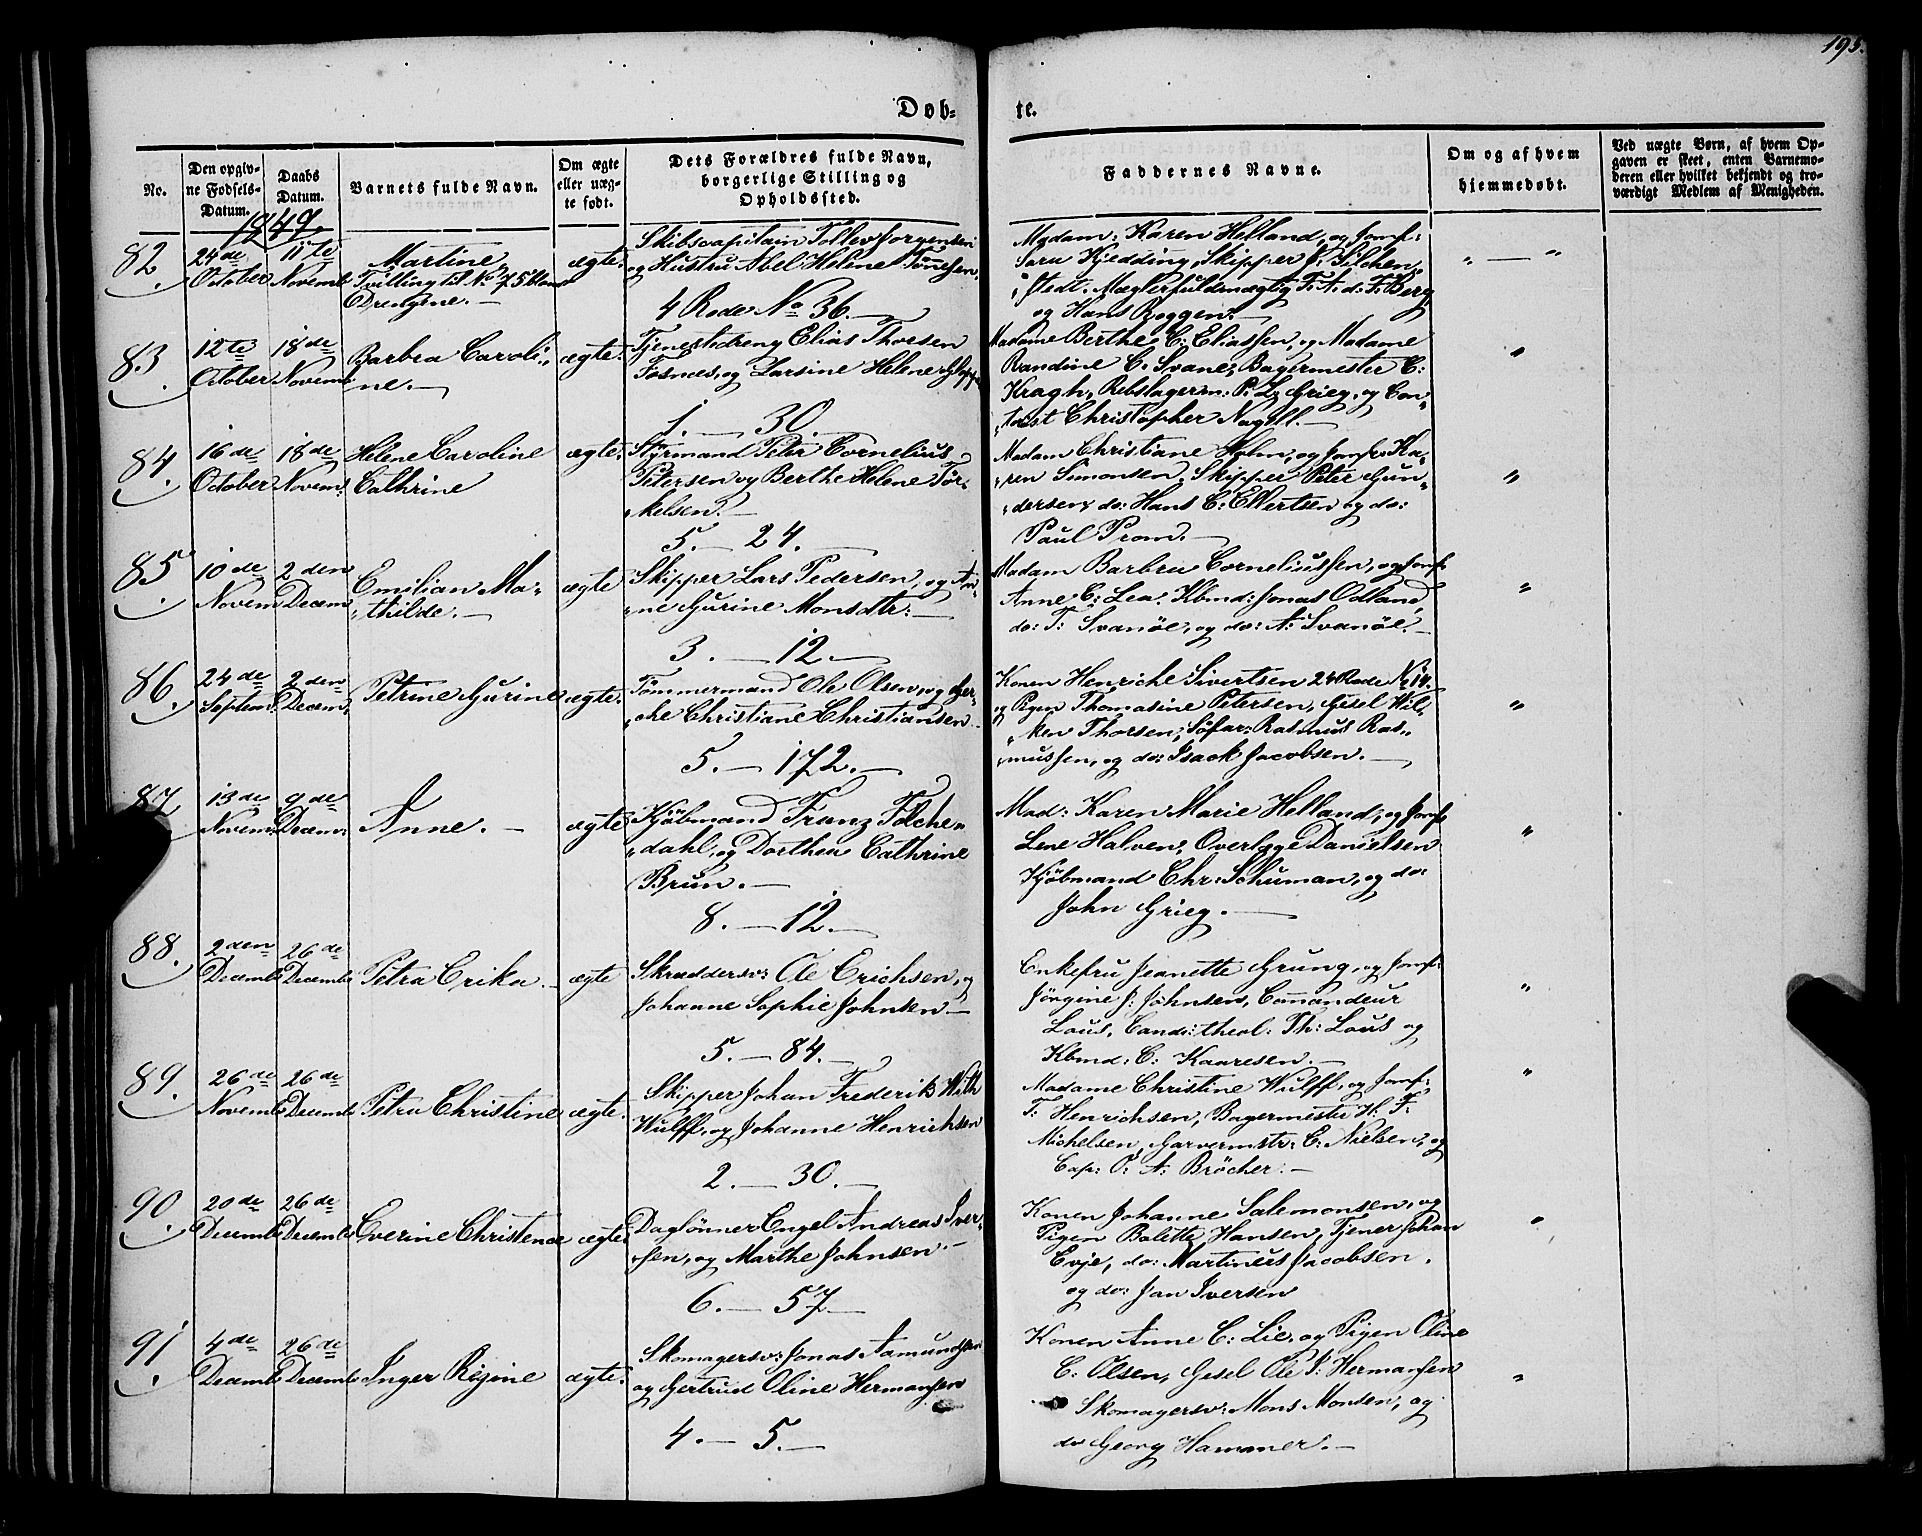 195.
Døb- te.
No.
Den opgivne Fødsels-Datum.
Daabs Datum.
Barnets fulde Navn.
Om ægte eller uægte født.
Dets Forældres fulde Navn, borgerlige Stilling og Opholdssted.
Faddernes Navne.
Om og af hvem hjemmedøbt.
Ved uægte Børn, af hvem Opgaven er skeet, enten Barnemoderen eller hvilket bekjendt og troværdigt Medlem af Menigheden.
1849.
82.
24de October
11te Novemb
Martine
Tvilling til No 75 blandt
Drengene.
ægte.
Skibscapitain Tollev Jørgensen
og Hustru Abel Helene Tönesen.
4 Rode No 36.
Madam: Karen Helland, og Jomf:
Sara Kjedding, Skipper
stedt. Mæglerfuldmægtig F: A: d: F: Berg
og Hans Roggen.
83.
12te October
18de Novemb
Barbra Caroli-
ne.
ægte.
Tjenestedreng Elias Thoesen
Fosnes, og Larsine Helene
1. — 30.
Madame Berthe C: Eliassen, og Madame
Randine C. Svane, Bagermester C:
Kragh, Rebslagerm: P: L: Grieg, og Con-
Christopher Nagell.
84.
16de October
18de Novem:
Helene Caroline
Cathrine
ægte.
Styrmand Peter Cornelius
Petersen og Berthe Helene Tör-
kelsen.
5. — 24.
Madam Christiane Holm, og Jomfr: Ka-
ren Simonsen, Skipper Peter Gun-
dersen, do: Hans C: Ellertsen og do:
Paul Prom.
85.
10de Novem
2den Decem
Emilian Ma-
thilde.
ægte
Skipper Lars Pedersen, og An-
ne Gurine Monsdtr:
3. — 12.
Madam Barbra Corneliussen, og Jomf:
Anne C: Lea. Kbmd: Jonas Odland,
do: T: Svanöe, og do: A: Svanöe.
86.
24de Septem:
2den Decem
Petrine Gurine
ægte.
Tömmermand Ole Olsen, og
Christiane Christiansen
5. — 172.
Konen Henriche Sivertsen 24 Rode No 14.
og Pigen Thomasine Petersen, Gesel Wil-
ken Thorsen, Söfar: Rasmus Ras-
mussen, og do: Isack Jacobsen.
87.
13de Novem:
9de Decem:
Anne.
ægte
Kjöbmand Franz Folche-
dahl, og Dorthea Cathrine
Brun.
8. — 12.
Mad: Karen Marie Helland, og Jomf:
Lene Halven, Overlæge Danielsen
Kjöbmand Chr: Schuman, og do:
John Grieg.
88.
2den Decemb
26de Decemb
Petra Erika.
ægte
Skræddersv: Ole Erichsen, og
Johanne Sophie Johnsen
5. — 84.
Enkefru Jeanette Grung, og Jomf:
Jörgine J: Johnsen, Comandeur
Lous, Cand: theol: Th: Lous og
Kbmd: C: Kaaresen.
89.
26de Novemb
26de Decemb
Petra Christine
ægte.
Skipper Johan Frederik With
Wulff, og Johanne Henrichsen
2. — 30.
Madame Christine Wulff, og Jomf:
T: Henrichsen, Bagermester H: F:
Michelsen, Garvermstr: C: Nielsen, og
Cap: O: A: Bröcher.
90.
20de Decemb
26de Decemb
Everine Christence
ægte.
Daglönner Engel Andreas Iver-
sen, og Marthe Johnsen.
6. — 57
Konen Johanne Salemonsen, og
Pigen Bolette Hansen, Tjener Johan
Evje, do: Martinus Jacobsen,
og do: Jan Iversen
91.
4de Decemb
26de Decemb
Inger Regine
ægte.
Skomagersv: Jonas Aamundsen
og Gertrud Oline Hermansen
4. — 5.
Konen Anne C: Lie, og Pigen Oline
C: Olsen, Gesel Ole I: Hermansen
Skomagersv: Mons Monsen, og
do Georg Hammer.